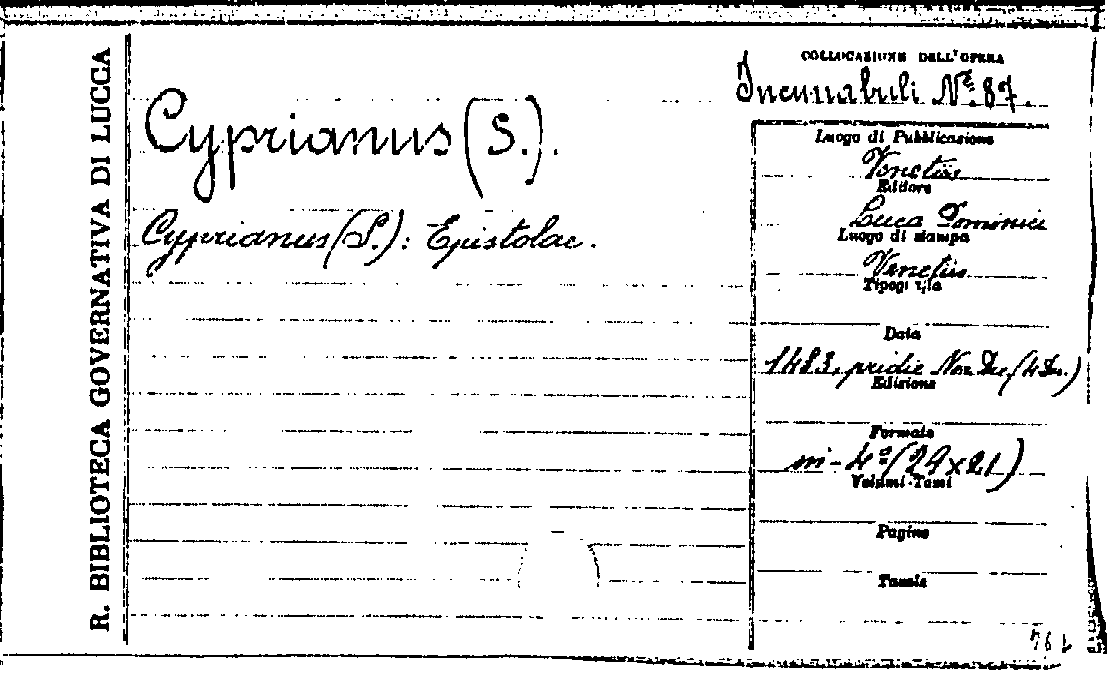 R. BIBLIOTECA GOVERNATIVA DI LUCCA
Cyprianus (S.).
Cyprianus (S.): Epistolae.
COLLOCAZIONE DELL'OPERA
Incunabuli Nº. 87.
Luogo di Pubblicazione
Venetiis
Editore
Luca Dominici
Luogo di stampa
Venetiis
Tipografia
Data
1483, pridie Non. Dec. (4 Dec.)
Edizione
Formato
in-4º (29 x 21)
Volumi-Tomi
Pagine
Tavole